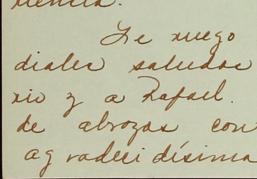 Le ruego
diales saludos
rio y a Rafael.
de abrazas con
agradecidísima